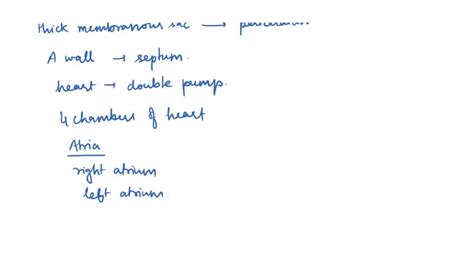 thick membranous sac → pericardium
A wall → septum.
heart → double pumps.
4 chambers of heart
Atria
right atrium
left atrium.